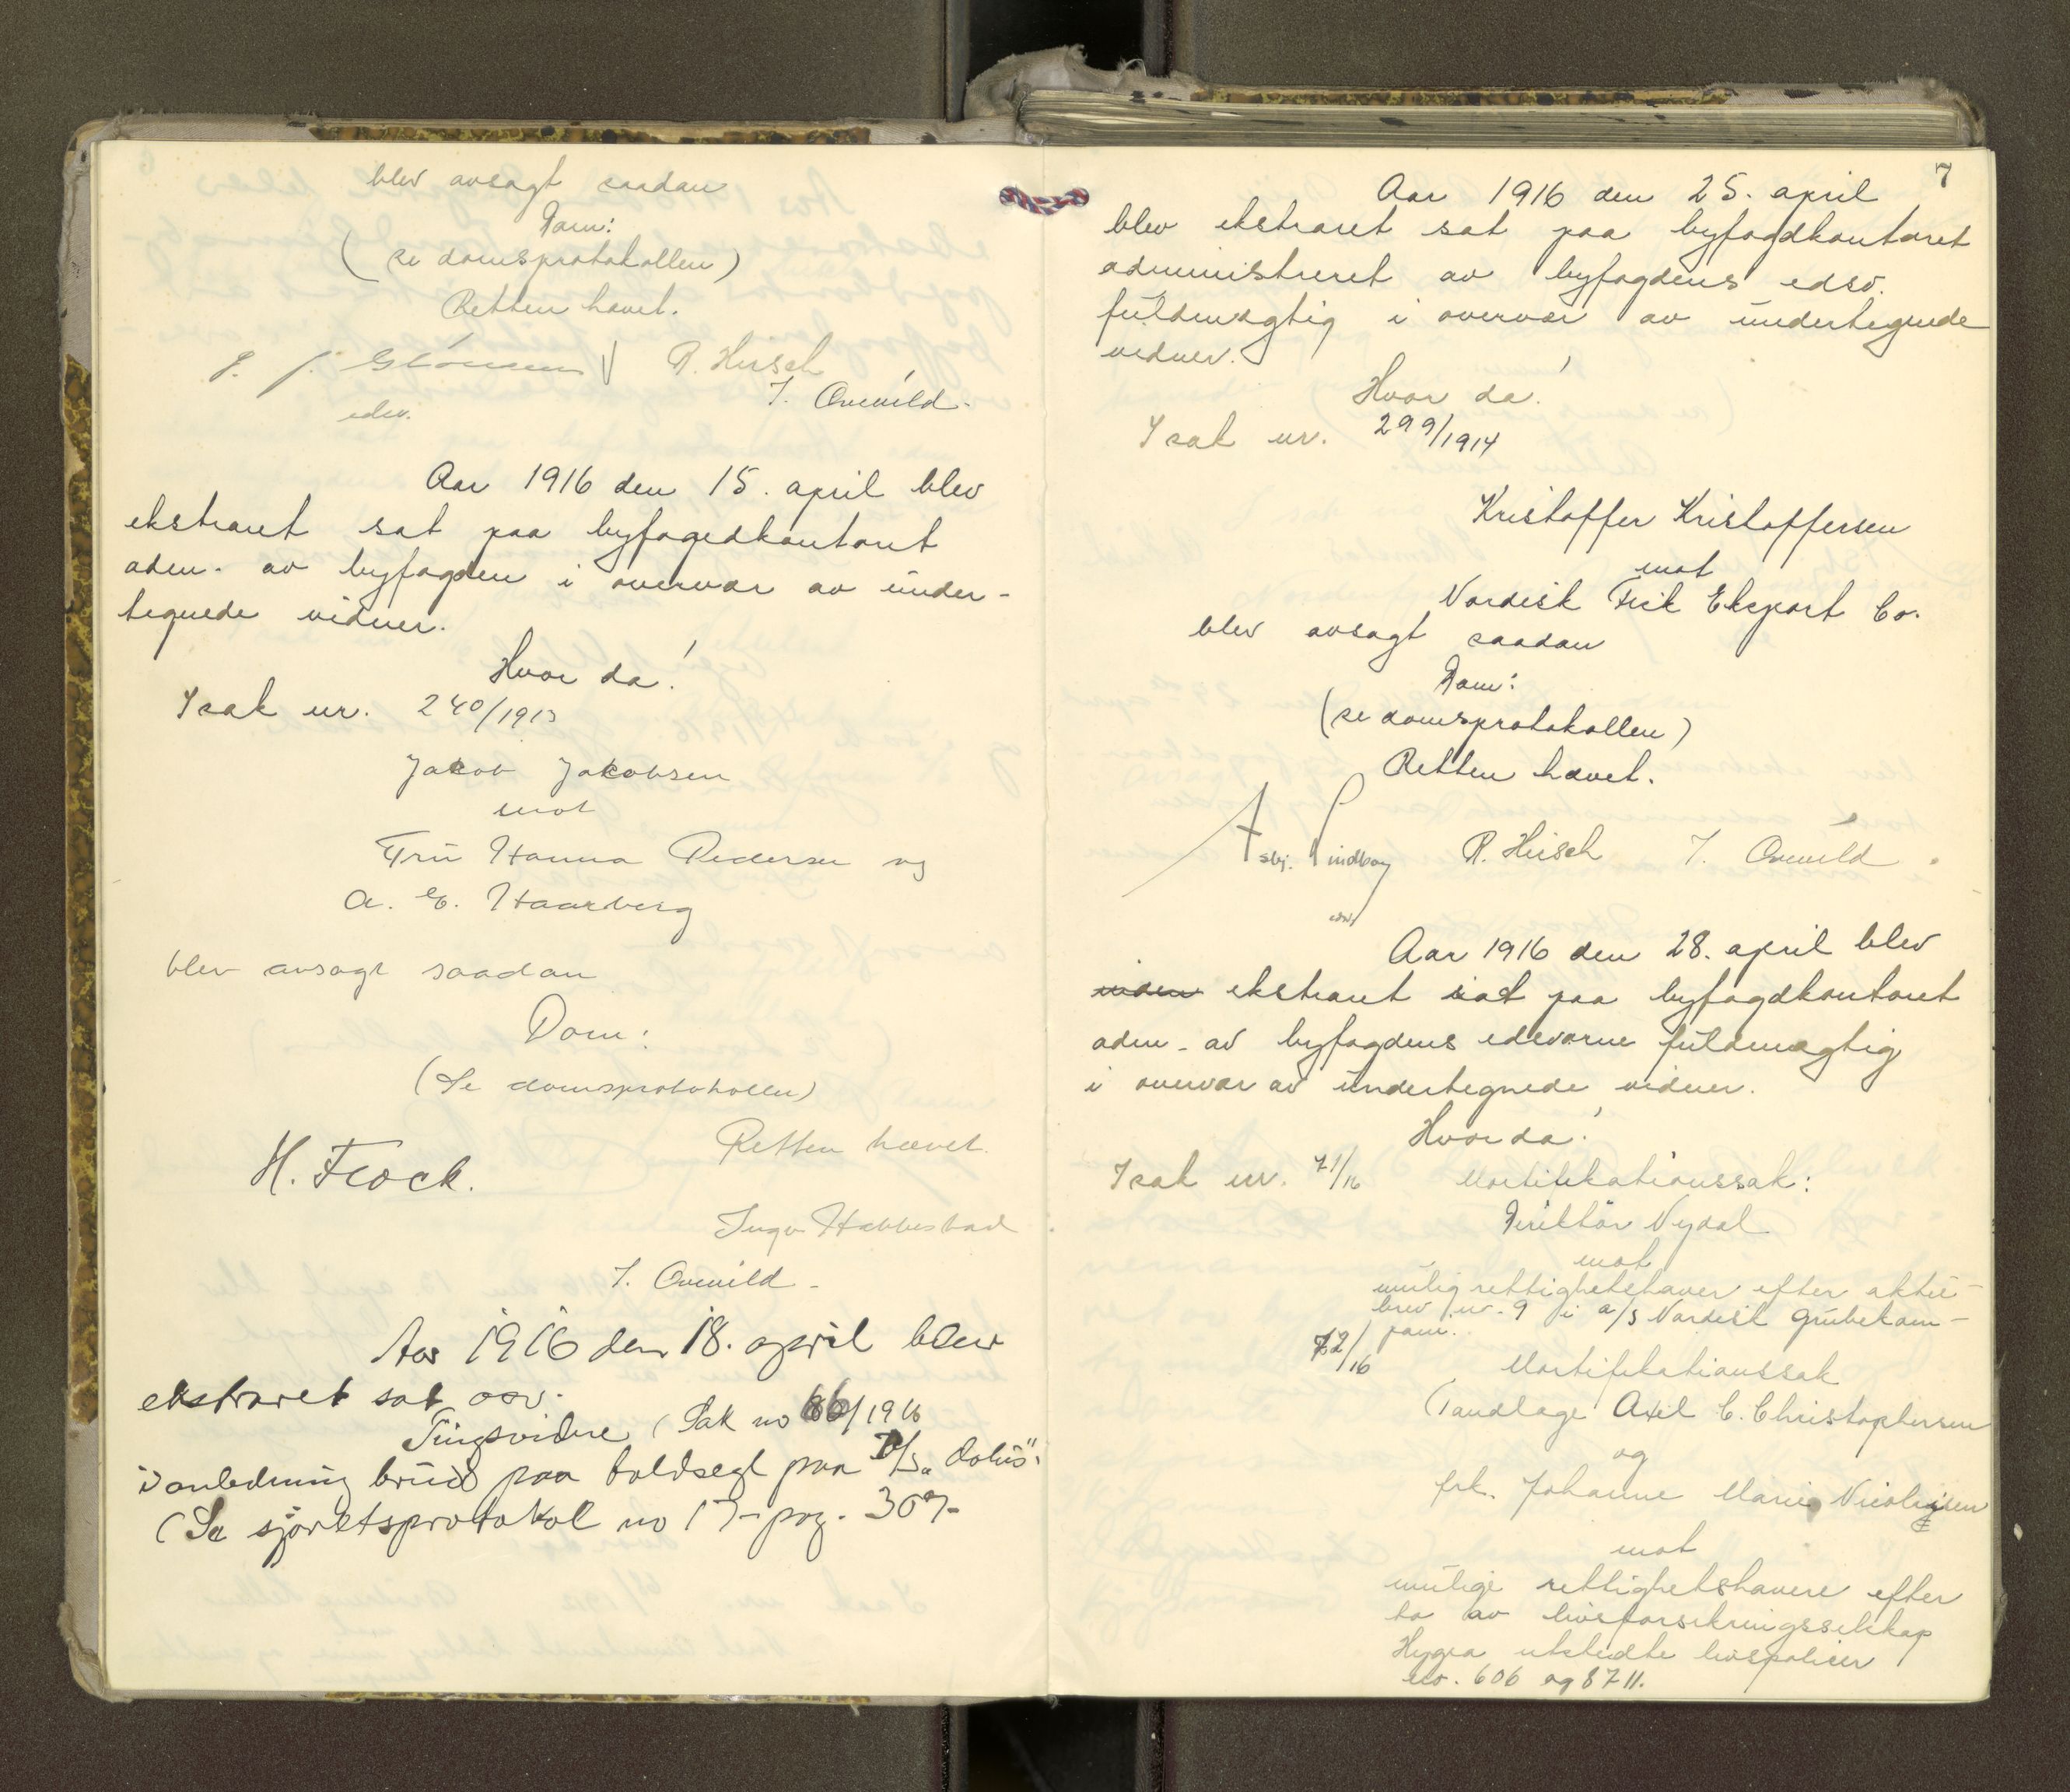 blev avsagt saadan
Dom:
(se domsprotokollen)
Retten hævet.
R. Hirsch
edsv.
J. Overvild.
Aar 1916 den 15. april blev
ekstraret sat paa byfogedkontoret
adm. av byfogden i overvær av under-
tegnede vidner.
Hvor da!
I sak nr. 240/1913
Jakob Jakobsen
mot
Fru Hanna Pedersen og
A. E. Haarberg
blev avsagt saadan
Dom:
(Se domsprotokollen)
Retten hævet.
H. Flock.
J. Overvild.
Aar 1916 den 18. april blev
ekstraret sat osv.
Tingsvidne (Sak no 86/1916
i anledning brud paa toldsegl paa D/S
(Se sjøretsprotokol no 17 - pag. 307-
7
Aar 1916 den 25. april
blev ekstraret sat paa byfogdkontoret
administreret av byfogdens edsv.
fuldmægtig i overvær av undertegnede
vidner.
Hvor da!
I sak nr. 299/1914
Kristoffer Kristoffersen
mot
Nordisk Fisk Eksport Co.
blev avsagt saadan
Dom:
(se domsprotokollen)
Retten hævet.
Asbj. Lindboy R. Hirsch J. Overvild.
edsv.
Aar 1916 den 28. april blev
ekstraret sat paa byfogdkontoret
adm. av byfogdens edsvorne fuldmægtig
i overvær av undertegnede vidner.
Hvor da!
I sak nr. 71/16 Mortifikationssak:
Direktør Nydal
mot
mulig rettighetshaver efter aktie-
brev nr. 9 i a/s Nordisk Grubekom-
pani.
72/16 Mortifikationssak
Tandlæge Axel C. Christophersen
og
frk. Johanne Marie Nicolaysen
mot
mulige rettighetshavere efter
to av livsforsikringsselskap
Hygea utstedte livspoliser
no. 606 og 8711.